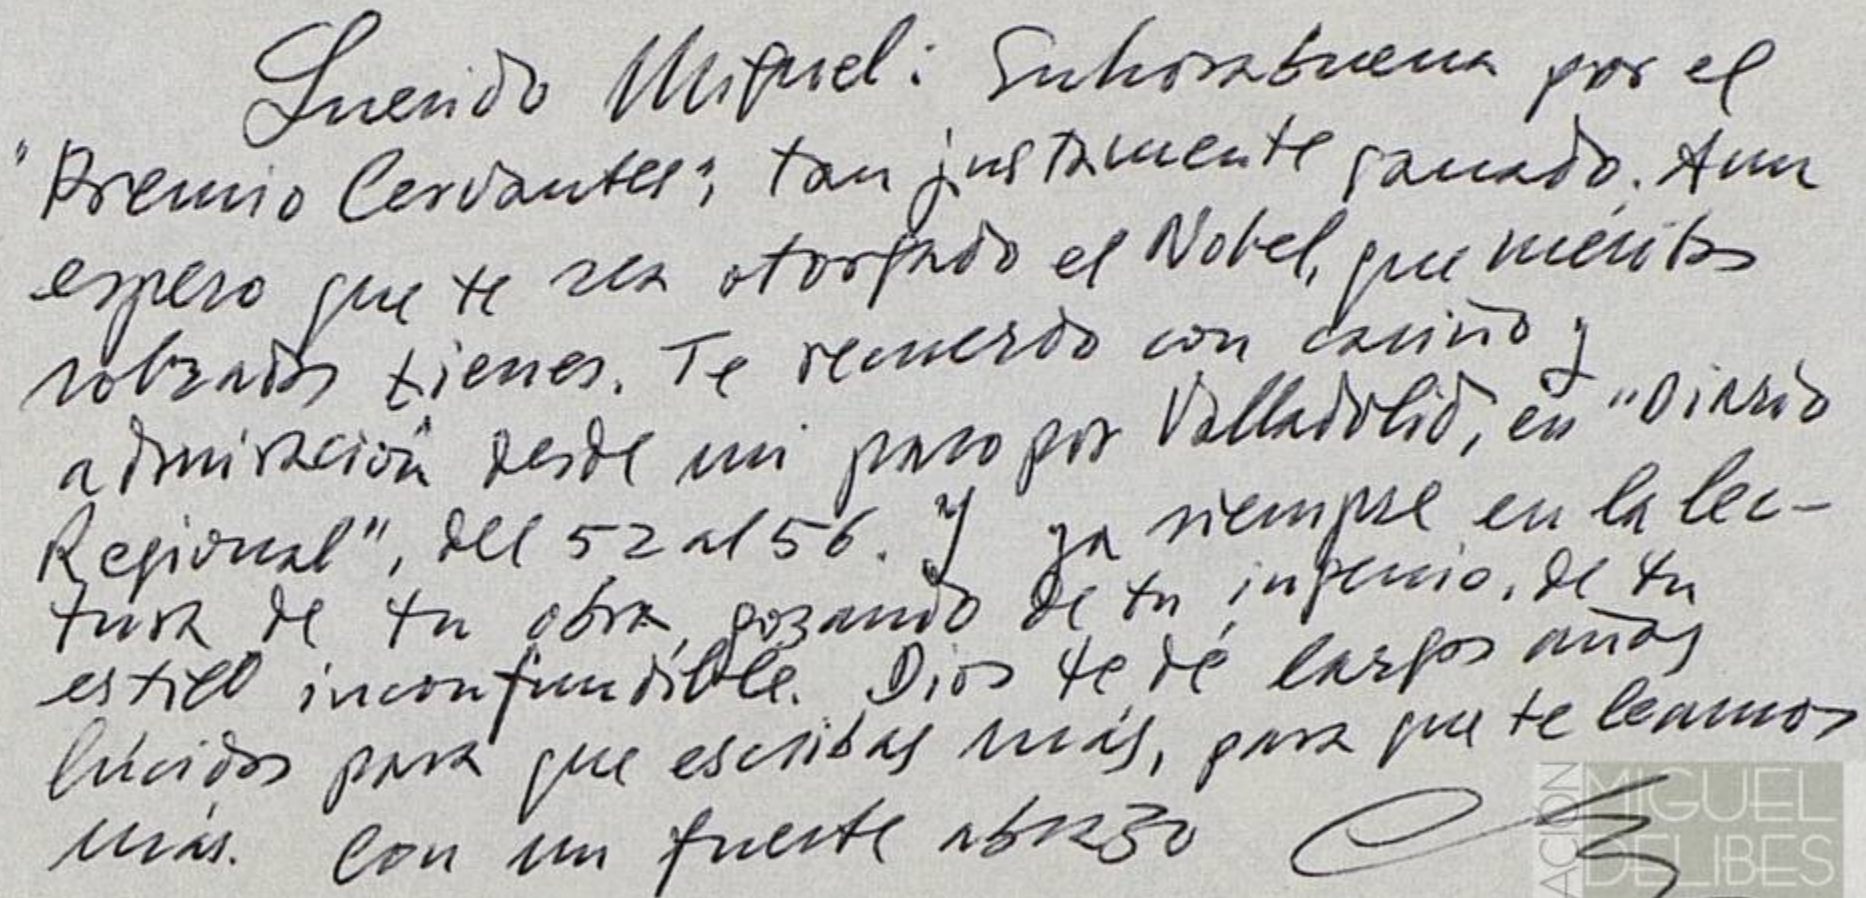 Querido Miguel: Enhorabuena por el
"Premio Cervantes", tan justamente ganado. Aun
espero que te sea otorgado el Nobel, que méritos
sobrados tienes. Te recuerdo con cariño y
admiración desde mi paso por Valladolid, en "Diario
Regional", del 52 al 56. Y ya siempre en la lec-
tura de tu obra, gozando de tu ingenio, de tu
estilo inconfundible. Dios te dé largos años
lúcidos para que escribas más, para que te leamos
más. Con un fuerte abrazo
ACIÓN
MIGUEL
DELIBES